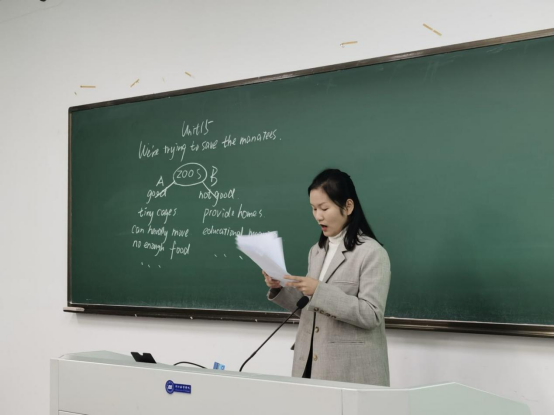 Unit 15
We're trying to save the manatees.
ZOOS
A B
good not good
tiny cages provide homes
can hardly move educational
no enough food . . .
. . .